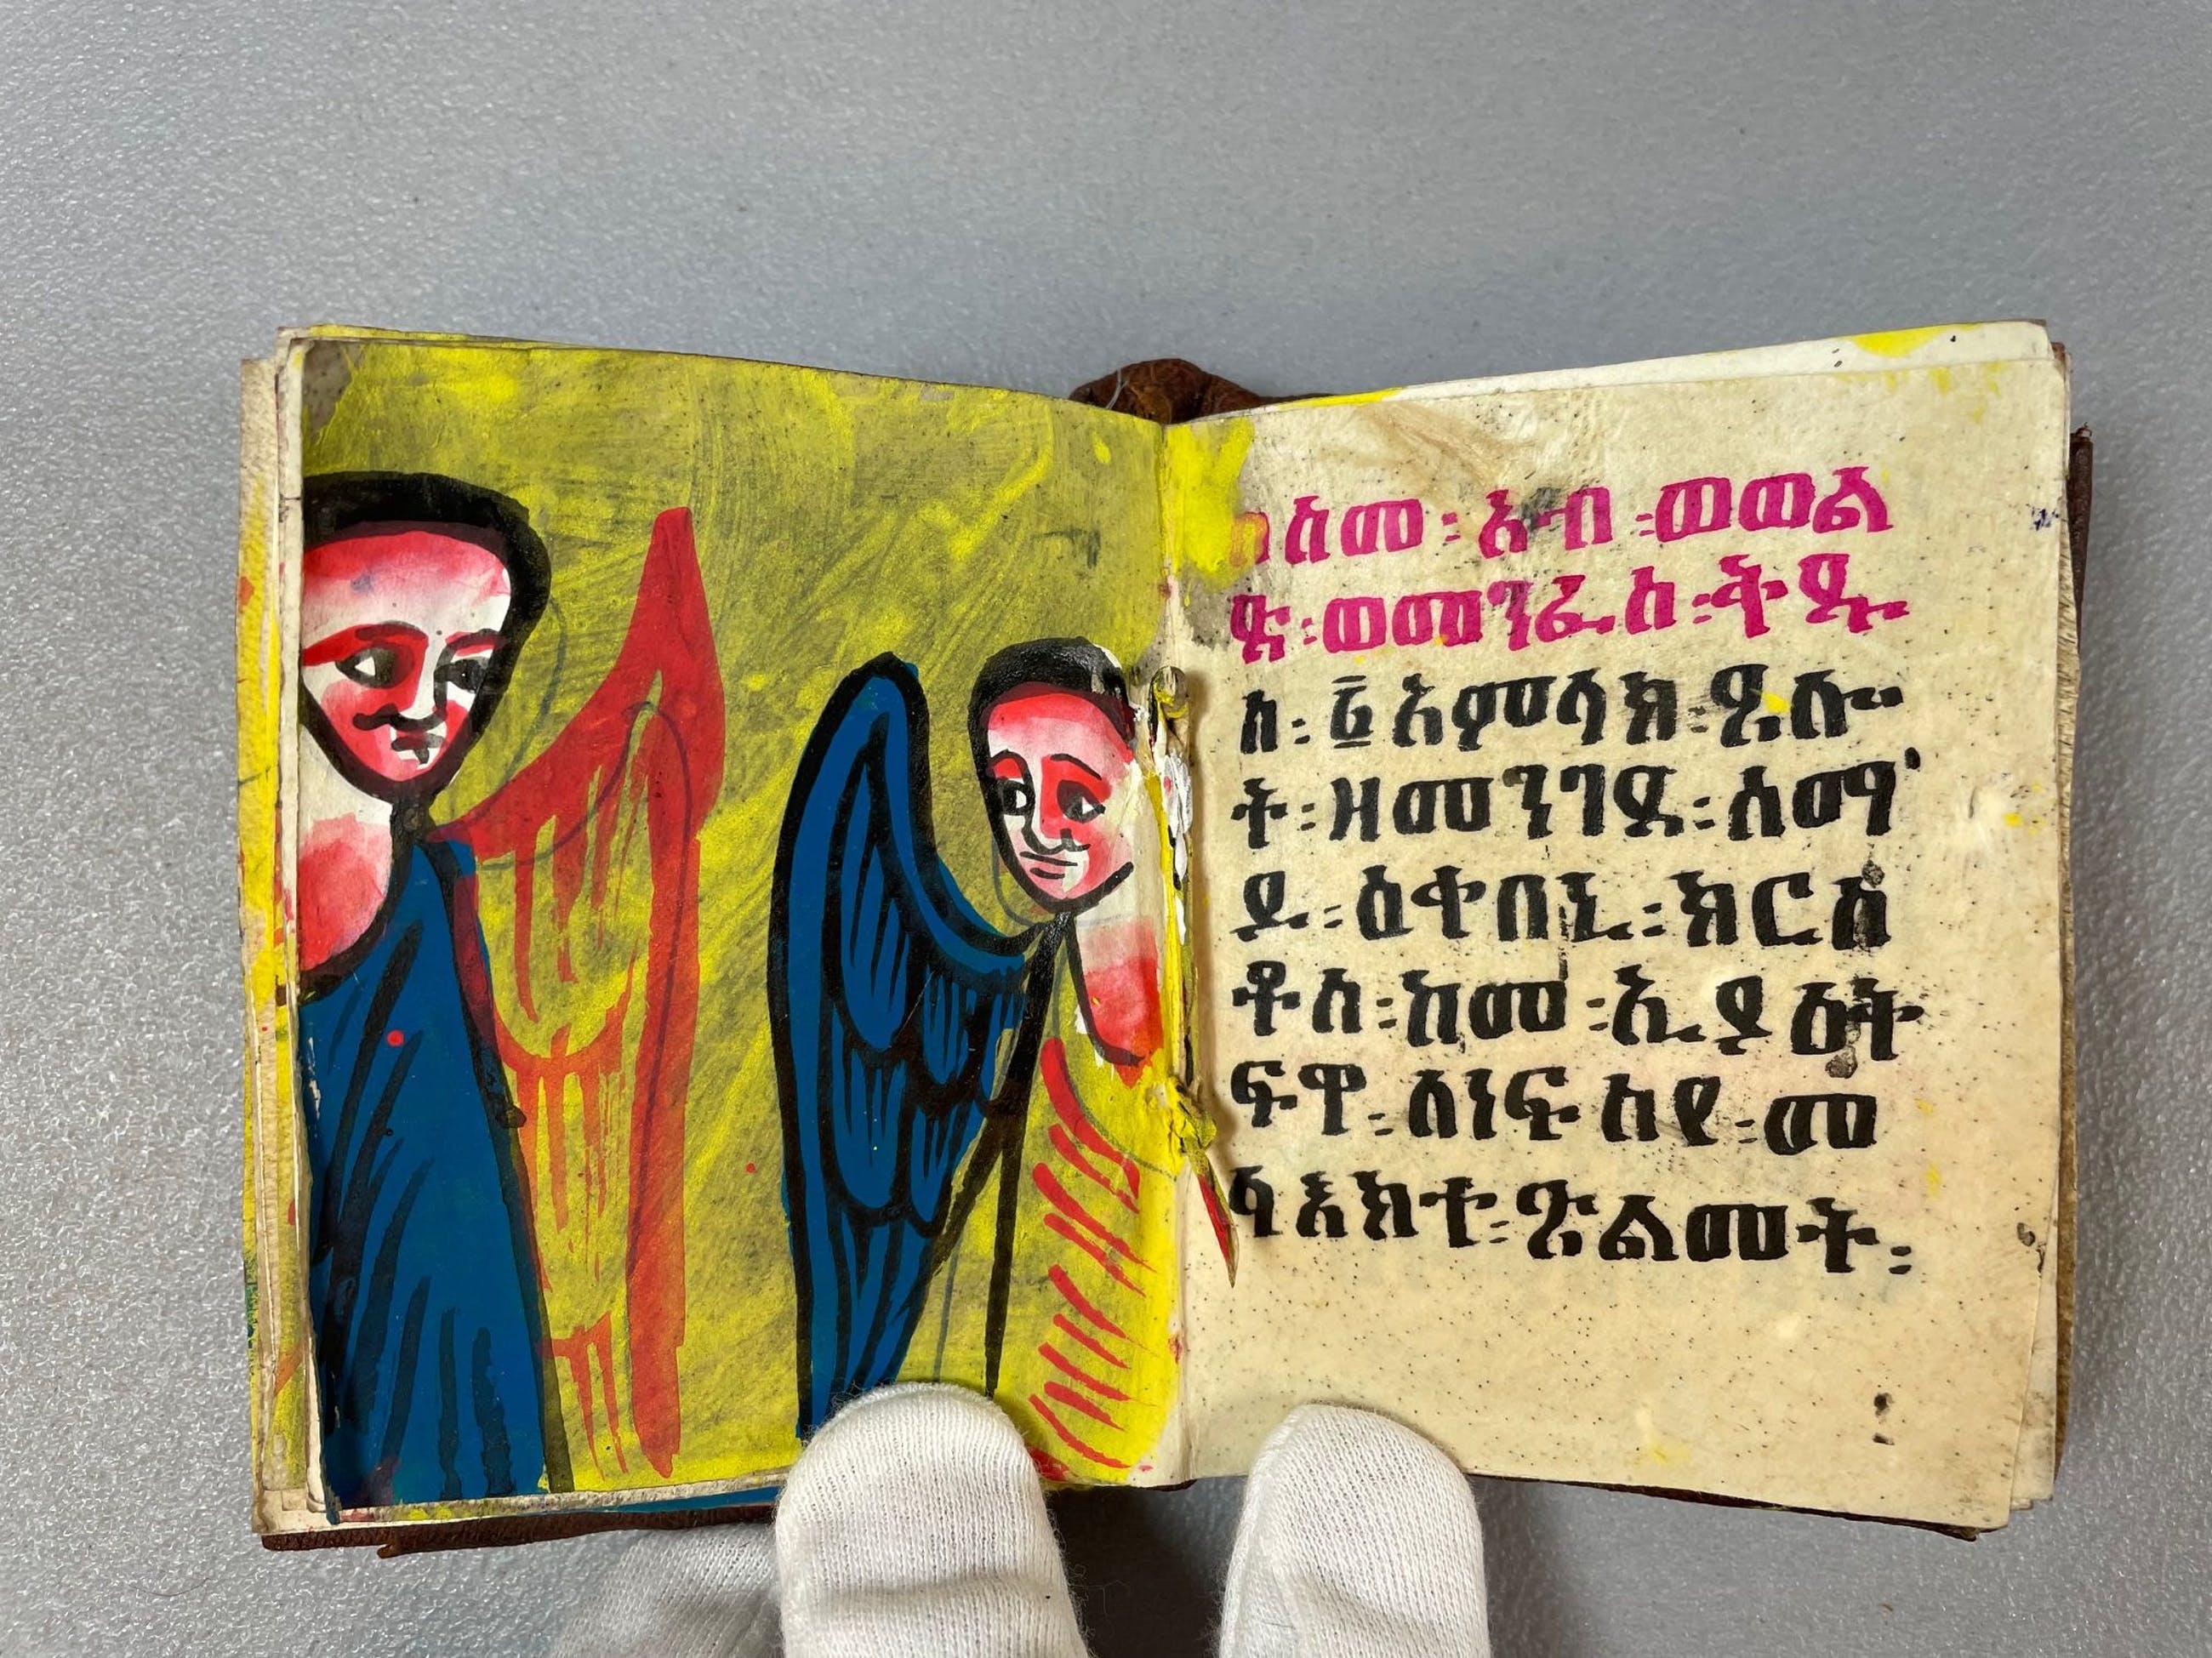 በስመ፡ አብ፡ ወወል
ድ፡ ወመንፈስ፡ ቅዱ
ስ፡ ፩አምላክ፡ ጸሎ
ት፡ ዘመንገደ፡ ሰማ
ይ፡ ዕቀበኒ፡ ክርስ
ቶስ፡ ከመ፡ ኢያዕት
ፍዋ፡ ለነፍስየ፡ መ
ላእክተ፡ ጽልመት፡